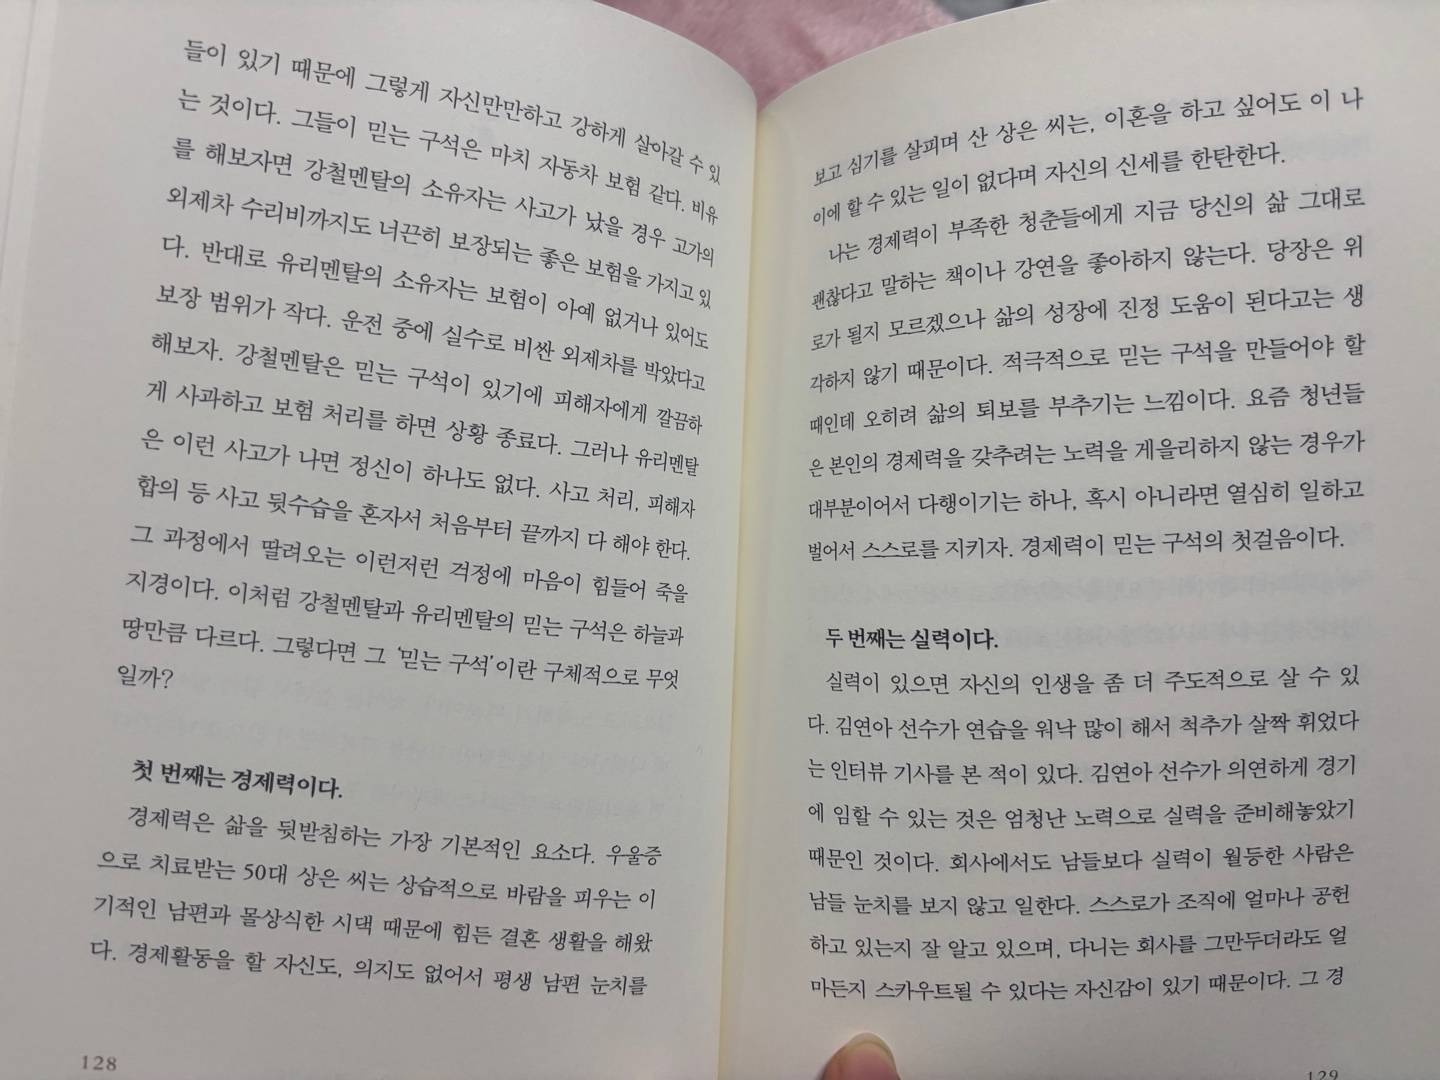 들이 있기 때문에 그렇게 자신만만하고 강하게 살아갈 수 있
는 것이다. 그들이 믿는 구석은 마치 자동차 보험 같다. 비유
를 해보자면 강철멘탈의 소유자는 사고가 났을 경우 고가의
외제차 수리비까지도 너끈히 보장되는 좋은 보험을 가지고 있
다. 반대로 유리멘탈의 소유자는 보험이 아예 없거나 있어도
보장 범위가 작다. 운전 중에 실수로 비싼 외제차를 박았다고
해보자. 강철멘탈은 믿는 구석이 있기에 피해자에게 깔끔하
게 사과하고 보험 처리를 하면 상황 종료다. 그러나 유리멘탈
은 이런 사고가 나면 정신이 하나도 없다. 사고 처리, 피해자
합의 등 사고 뒷수습을 혼자서 처음부터 끝까지 다 해야 한다.
그 과정에서 딸려오는 이런저런 걱정에 마음이 힘들어 죽을
지경이다. 이처럼 강철멘탈과 유리멘탈의 믿는 구석은 하늘과
땅만큼 다르다. 그렇다면 그 ‘믿는 구석’이란 구체적으로 무엇
일까?
첫 번째는 경제력이다.
경제력은 삶을 뒷받침하는 가장 기본적인 요소다. 우울증
으로 치료받는 50대 상은 씨는 상습적으로 바람을 피우는 이
기적인 남편과 몰상식한 시댁 때문에 힘든 결혼 생활을 해왔
다. 경제활동을 할 자신도, 의지도 없어서 평생 남편 눈치를
128
보고 심기를 살피며 산 상은 씨는, 이혼을 하고 싶어도 이 나
이에 할 수 있는 일이 없다며 자신의 신세를 한탄한다.
나는 경제력이 부족한 청춘들에게 지금 당신의 삶 그대로
괜찮다고 말하는 책이나 강연을 좋아하지 않는다. 당장은 위
로가 될지 모르겠으나 삶의 성장에 진정 도움이 된다고는 생
각하지 않기 때문이다. 적극적으로 믿는 구석을 만들어야 할
때인데 오히려 삶의 퇴보를 부추기는 느낌이다. 요즘 청년들
은 본인의 경제력을 갖추려는 노력을 게을리하지 않는 경우가
대부분이어서 다행이기는 하나, 혹시 아니라면 열심히 일하고
벌어서 스스로를 지키자. 경제력이 믿는 구석의 첫걸음이다.
두 번째는 실력이다.
실력이 있으면 자신의 인생을 좀 더 주도적으로 살 수 있
다. 김연아 선수가 연습을 워낙 많이 해서 척추가 살짝 휘었다
는 인터뷰 기사를 본 적이 있다. 김연아 선수가 의연하게 경기
에 임할 수 있는 것은 엄청난 노력으로 실력을 준비해놓았기
때문인 것이다. 회사에서도 남들보다 실력이 월등한 사람은
남들 눈치를 보지 않고 일한다. 스스로가 조직에 얼마나 공헌
하고 있는지 잘 알고 있으며, 다니는 회사를 그만두더라도 얼
마든지 스카우트될 수 있다는 자신감이 있기 때문이다. 그 경
129